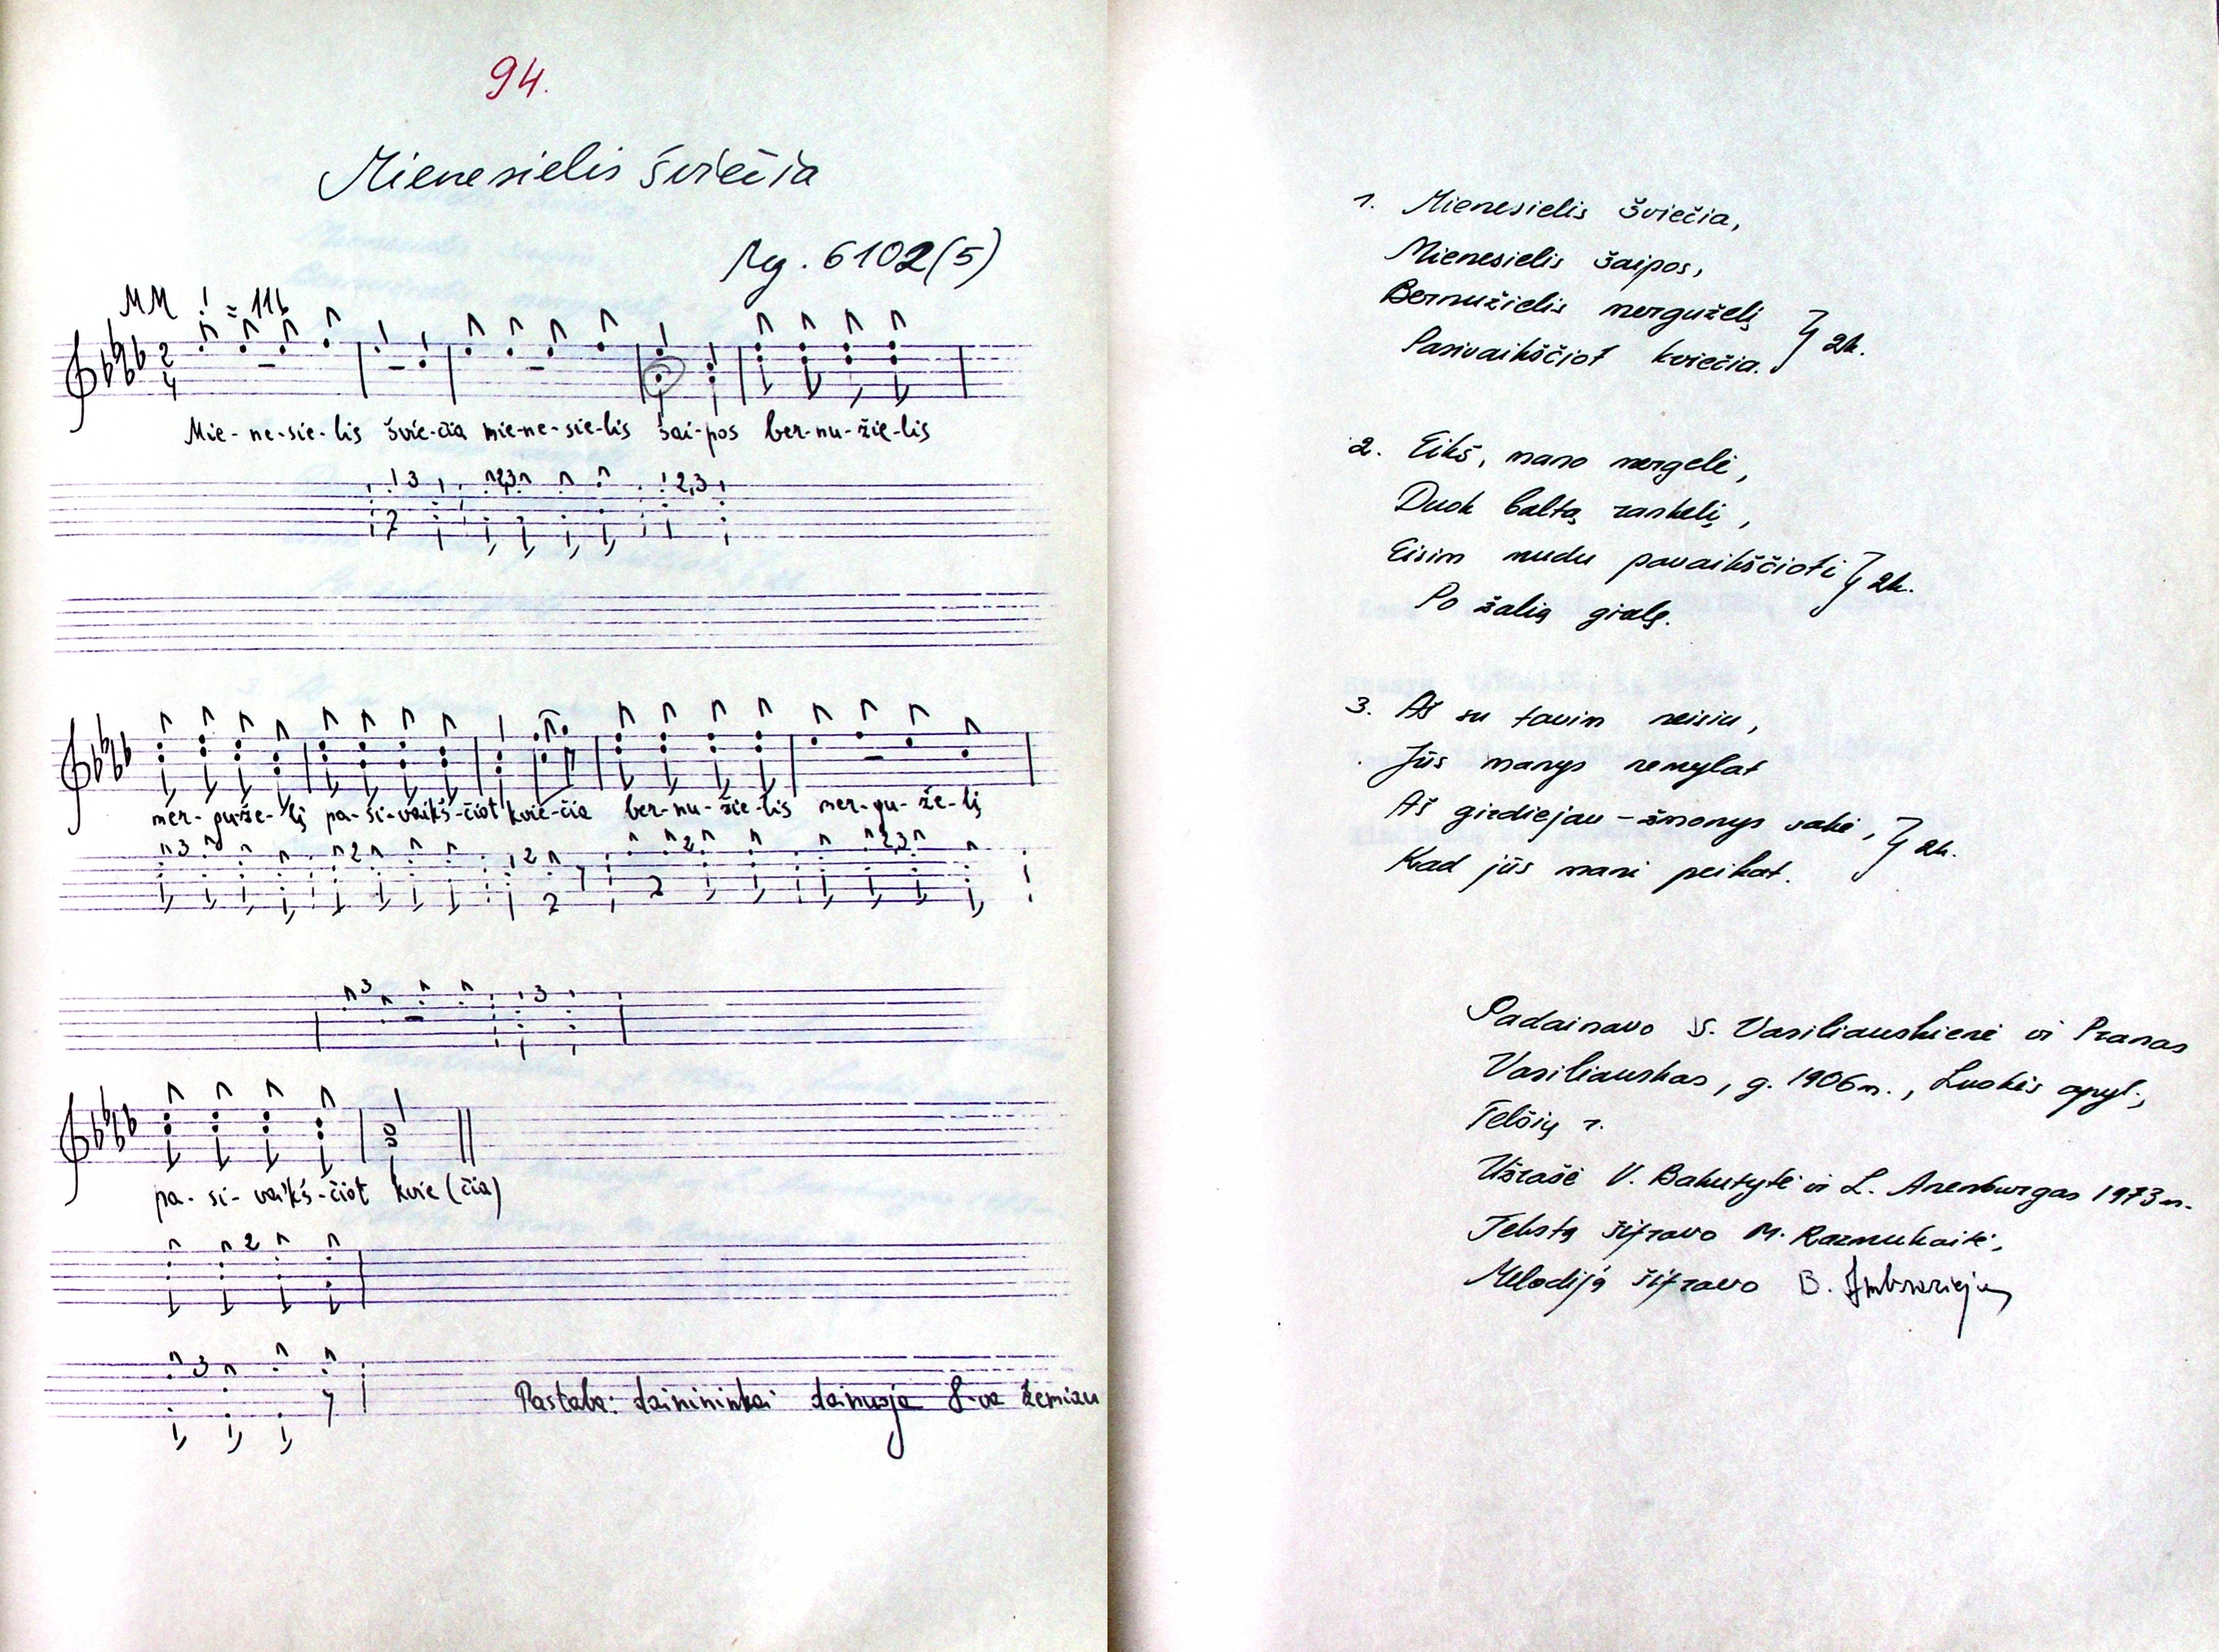 94.
Mienesielis šviečia
Mg. 6102(5)
MM = 116
2
4
Mie-ne-sie-lis švie-čia mie-ne-sie-lis šai-pos ber-nu-žie-lis
3 2,3 2,3
mer-gu-že-lį pa-si-vaikš-čiot kvie-čia ber-nu-žie-lis mer-gu-že-lį
3 2 2 2 2,3
3 3
pa-si-vaikš-čiot kvie(čia)
2
3
Pastaba: dainininkai dainuoja 8-va žemiau
1. Mienesielis šviečia,
Mienesielis šaipos,
Bernužielis merguželį
Pasivaikščiot kviečia. } 2k.
2. Eikš, mano mergelė,
Duok baltą rankelį,
Eisim mudu pavaikščioti } 2k.
Po žalią girelę.
3. Aš su tavim neisiu,
Jūs manys nemylat
Aš girdiejau – žmonys sakė, } 2k.
Kad jūs mani peikat.
Padainavo S. Vasiliauskienė ir Pranas
Vasiliauskas, g. 1906 m., Luokės apyl.,
Telšių r.
Užrašė V. Bakutytė ir L. Anenburgas 1973 m.
Tekstą šifravo M. Razmukaitė,
Melodiją šifravo B.